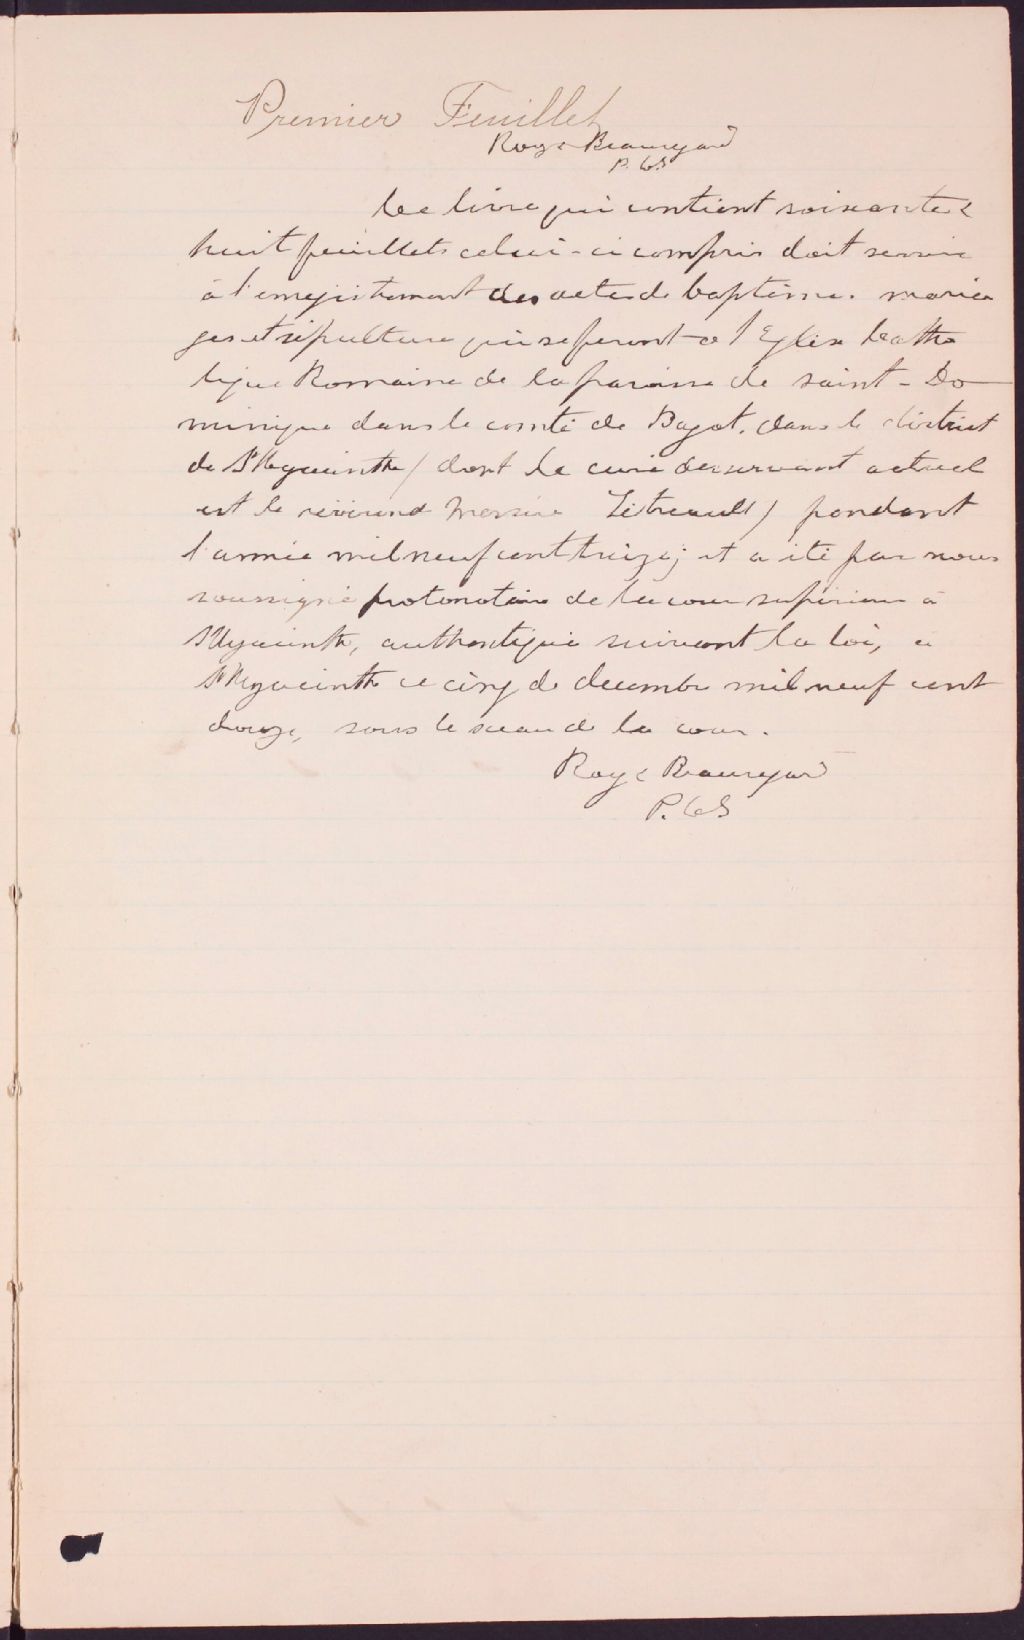 Premier Feuillet
Roy & Beauregard
P. C S
Ce livre qui contient soixante &
huit feuillets celui-ci compris doit servir
à l'enregistrement des actes de baptême. maria
ges et sépulture qui se feront à l'Eglise Catho
lique Romaine de la paroisse de saint - Do
minique dans le comté de Bagot. dans le district
de St Hyacinthe / dont le curé desservant actuel
est le révérend Messire Tétreault / pendant
l'année mil neuf cent treize; et a été par nous
soussigné protonotaire de la cour supérieure à
St Hyacinthe, authentiqué suivant la loi, à
St Hyacinthe ce cinq de decembre mil neuf cent
douze, sous le sceau de la cour.
Roy & Beauregard
P. C S